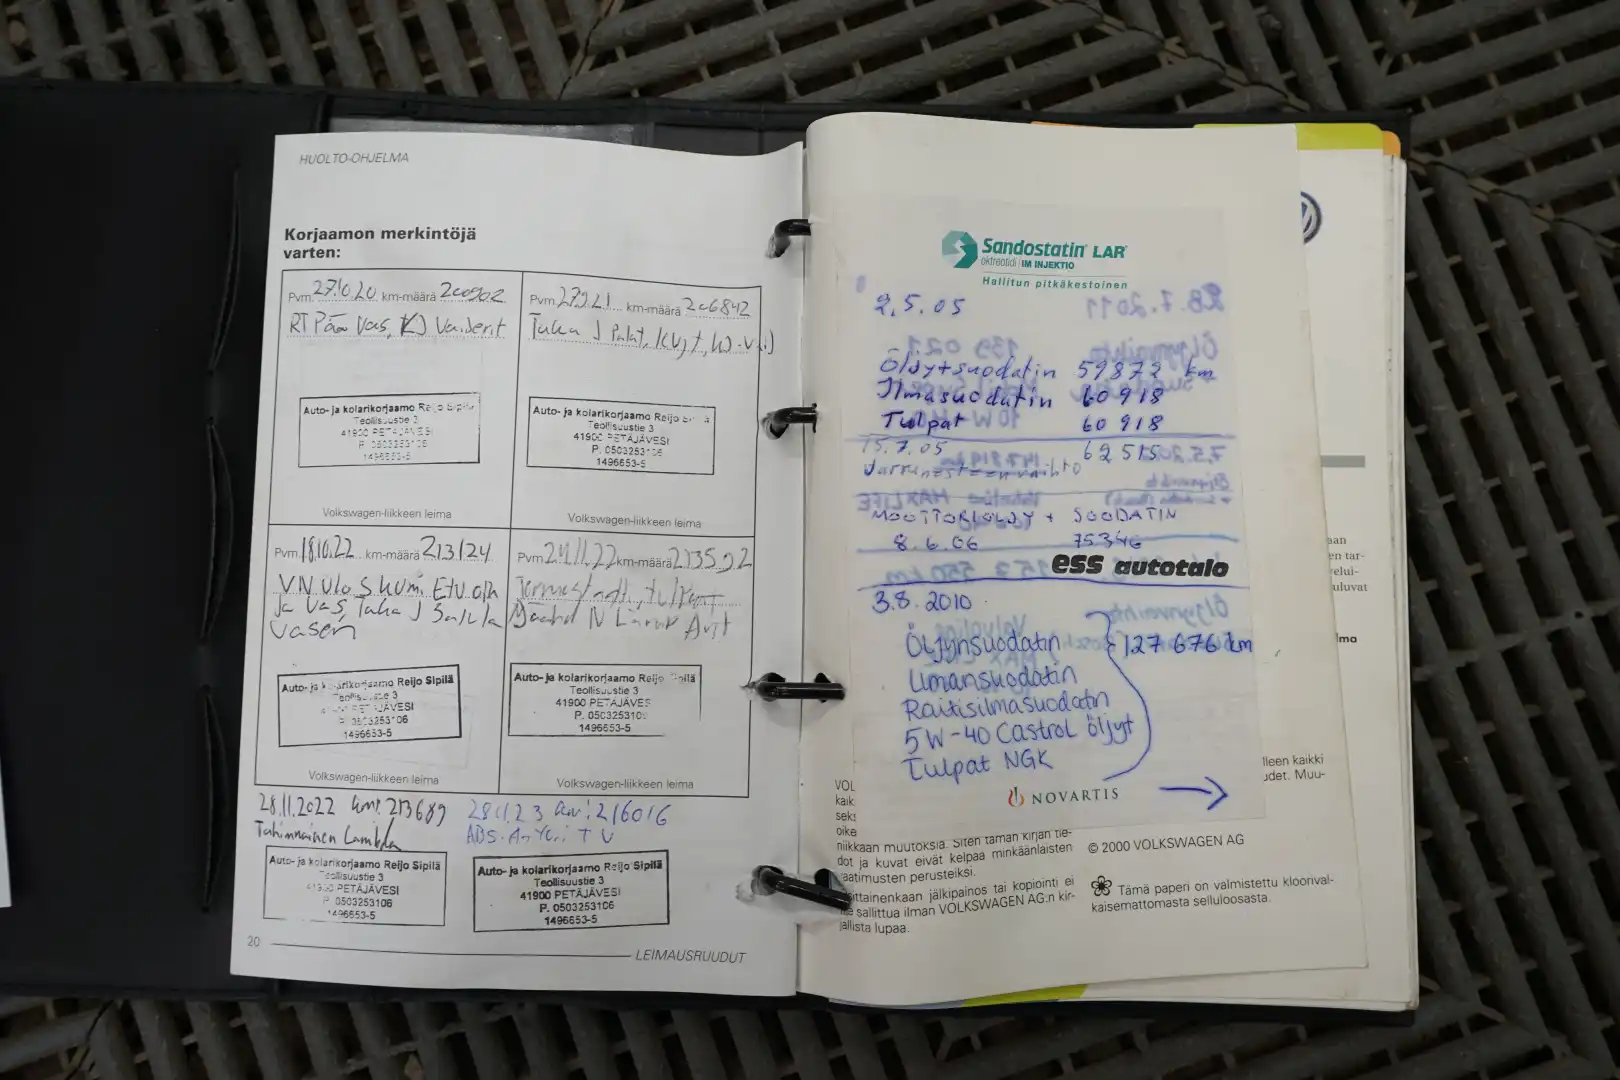 HUOLTO-OHJELMA
Korjaamon merkintöjä
varten:
Pvm. 27.10.20 km-määrä 200902
RT Pää Vas,
Auto- ja kolarikorjaamo Reijo Sipilä
Teollisuustie 3
41900 PETÄJÄVESI
P. 0503253106
1496653-5
Volkswagen-liikkeen leima
Pvm. 27.9.21 km-määrä 206842
Taka J Palat,
Auto- ja kolarikorjaamo Reijo
Teollisuustie 3
41900 PETÄJÄVESI
P. 0503253106
1496653-5
Volkswagen-liikkeen leima
Pvm. 18.10.22 km-määrä 213124
VN Ulo S kumi Etu oik
ja vas, Taka J Satula
vasen
Auto- ja kolarikorjaamo Reijo Sipilä
Teollisuustie 3
PETÄJÄVESI
P. 0503253106
1496653-5
Volkswagen-liikkeen leima
Pvm. 24.11.22 km-määrä 213592
Termostaatti, tulpat
Auto- ja kolarikorjaamo Reijo Sipilä
Teollisuustie 3
41900 PETÄJÄVESI
P. 0503253106
1496653-5
Volkswagen-liikkeen leima
28.11.2022 km: 213689
Lambda
Auto- ja kolarikorjaamo Reijo Sipilä
Teollisuustie 3
41900 PETÄJÄVESI
P. 0503253106
1496653-5
28.11.23 km: 216016
ABS-Anturi TU
Auto- ja kolarikorjaamo Reijo Sipilä
Teollisuustie 3
41900 PETÄJÄVESI
P. 0503253106
1496653-5
20
LEIMAUSRUUDUT
Sandostatin® LAR®
oktreotidi IM INJEKTIO
Hallitun pitkäkestoinen
2.5.05
Öljy+suodatin 59872 km
Ilmasuodatin 60918
Tulpat 60918
15.7.05 62515
MOOTTORIÖLJY + SUODATIN
8.6.06 75346
ess autotalo
3.8.2010
Öljynsuodatin 127 676 km
Ilmansuodatin
Raitisilmasuodatin
5W-40 Castrol öljyt
Tulpat NGK
NOVARTIS
VOL
kaik
seks
oike
niikkaan muutoksia. Siten tämän kirjan tie-
dot ja kuvat eivät kelpaa minkäänlaisten
vaatimusten perusteiksi.
Osittainenkaan jälkipainos tai kopiointi ei
ole sallittua ilman VOLKSWAGEN AG:n kir-
jallista lupaa.
© 2000 VOLKSWAGEN AG
Tämä paperi on valmistettu kloorival-
kaisemattomasta selluloosasta.